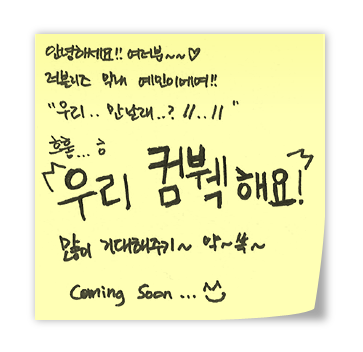 안녕하세요!! 여러붐~~♡
러블리즈 막내 예인이에여!!
"우리.. 만날래..? //..// "
흐흠...ㅎ
우리 컴붹해요!
많이 기대해주기~ 약~쏙~
Coming Soon ...